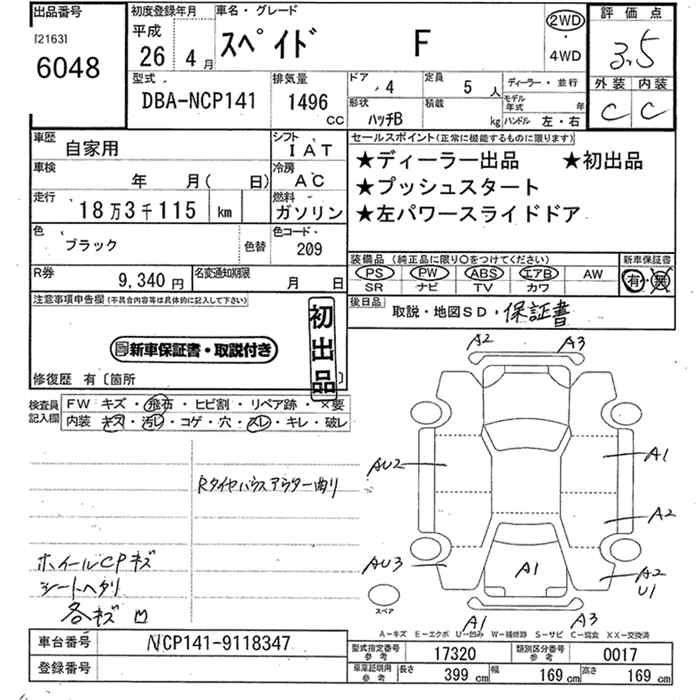 出品番号 初度登録年月 車名・グレード 評価点
[2163]
6048
平成
26年4月
スペイド F
2WD
・
4WD
3.5
外装 内装
C C
型式 排気量 ドア 定員 ディーラー・並行
DBA-NCP141 1496 CC 4 5人
形状 積載 モデル年式 年
ハッチB kg ハンドル 左・右
車歴 シフト セールスポイント(正常に機能するものに限ります)
自家用 IAT
★ディーラー出品 ★初出品
★プッシュスタート
★左パワースライドドア
車検 冷房
年 月( 日) AC
走行 燃料
18万3千115 km ガソリン
色 色コード
ブラック 色替 209
装備品(純正品に限り○をつけてください) 新車保証書
PS PW ABS エアB AW 有・無
SR ナビ TV カワ
R券 名変通知期限
9,340円 月 日
後日品
取説・地図SD・保証書
注意事項申告欄(不具合内容等は具体的に記入して下さい)
新車保証書・取説付き
初出品
修復歴 有〔箇所 〕
検査員記入欄
FW キズ・飛石・ヒビ割・リペア跡・×要
内装 キズ・汚レ・コゲ・穴・スレ・キレ・破レ
Rタイヤハウスアウター曲り
ホイールCPキズ
シートヘタリ
各キズ凹
A2 A3
AU2 A1
A2
AU3 A1 A2
U1
スペア
A1 A3
A-キズ E-エクボ U-凹み W-補修跡 S-サビ C-腐食 XX-交換済
車台番号 NCP141-9118347
登録番号
型式指定番号 参考 17320 類別区分番号 参考 0017
車庫証明用 参考 長さ 399 cm 幅 169 cm 高さ 169 cm